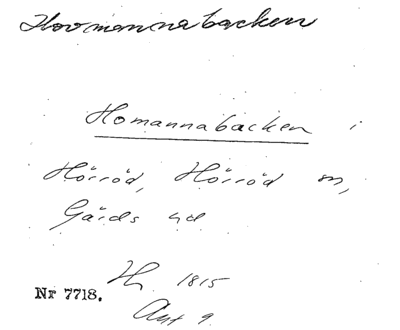 Hovmannabacken
Homannabacken i
Hörröd, Hörröd sn,
Gärds hd
Hy 1815
Nr 7718.
Akt 9